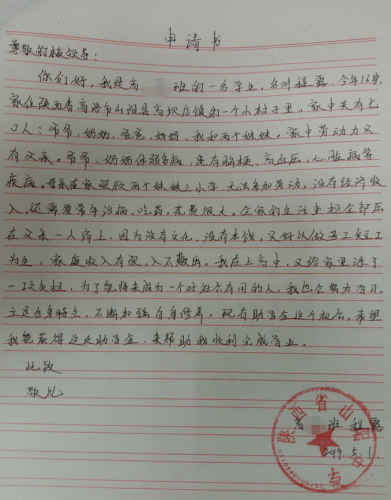 申请书
尊敬的校领导:
你们好,我是高 班的一名学生,名叫程露.今年16岁,
家住陕西省商洛市山阳县高坝店镇的一个小村子里,家中共有七
口人:爷爷,奶奶,爸爸,妈妈,我和两个妹妹。家中劳动力只
有父亲。爷爷、奶奶体弱多病,患有脑梗、高血压、心脏病等
疾病。母亲在家照顾两个妹妹上小学,无法参加劳动,没有经济收
入,还需要常年治病、吃药,花费很大。全家的生活重担全部压
在父亲一人肩上,因为没有文化,没有本钱,只好以做苦工卖工
为生,家庭收入有限,入不敷出。我在上高中,又给家里添了
一项负担,为了能将来成为一个对社会有用的人,我也会努力学习,
立足自身特点,不断加强自身修养,现有助学金这个机会,希望
我能获得这次助学金,来帮助我顺利完成学业。
此致
敬礼
高 班 程露
2019.5.1
陕西省山阳中